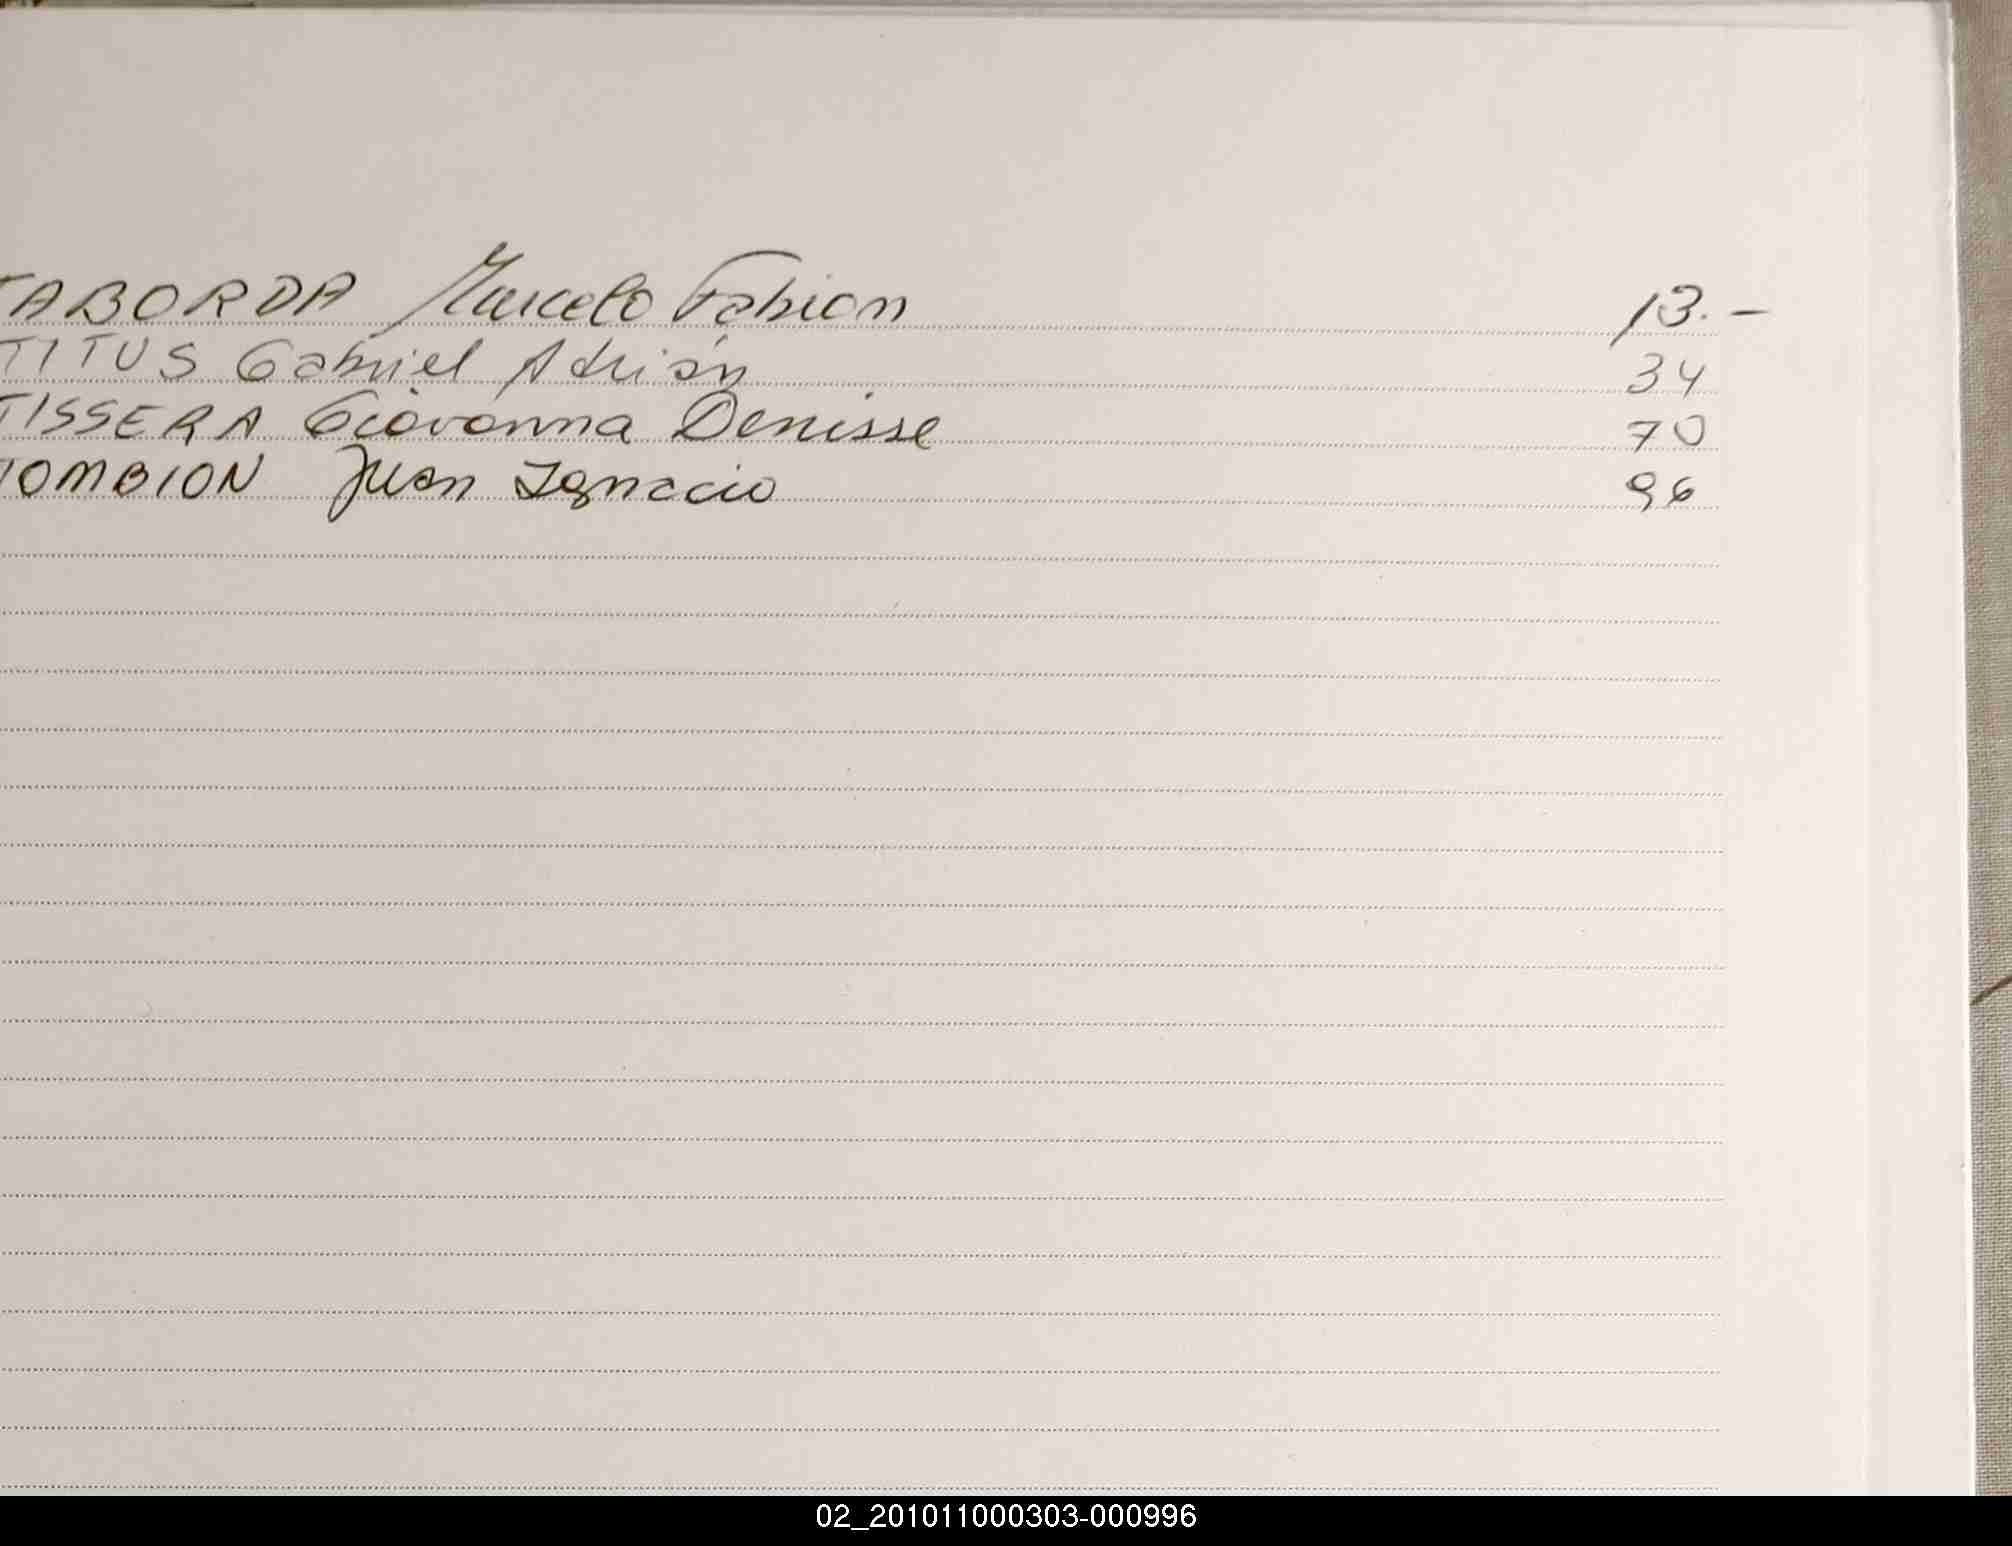 TABORDA Marcelo Fabian 13.-
TITUS Gabriel Adrián 34
TISSERA Giovanna Denisse 70
TOMBION Juan Ignacio 96
02_201011000303-000996